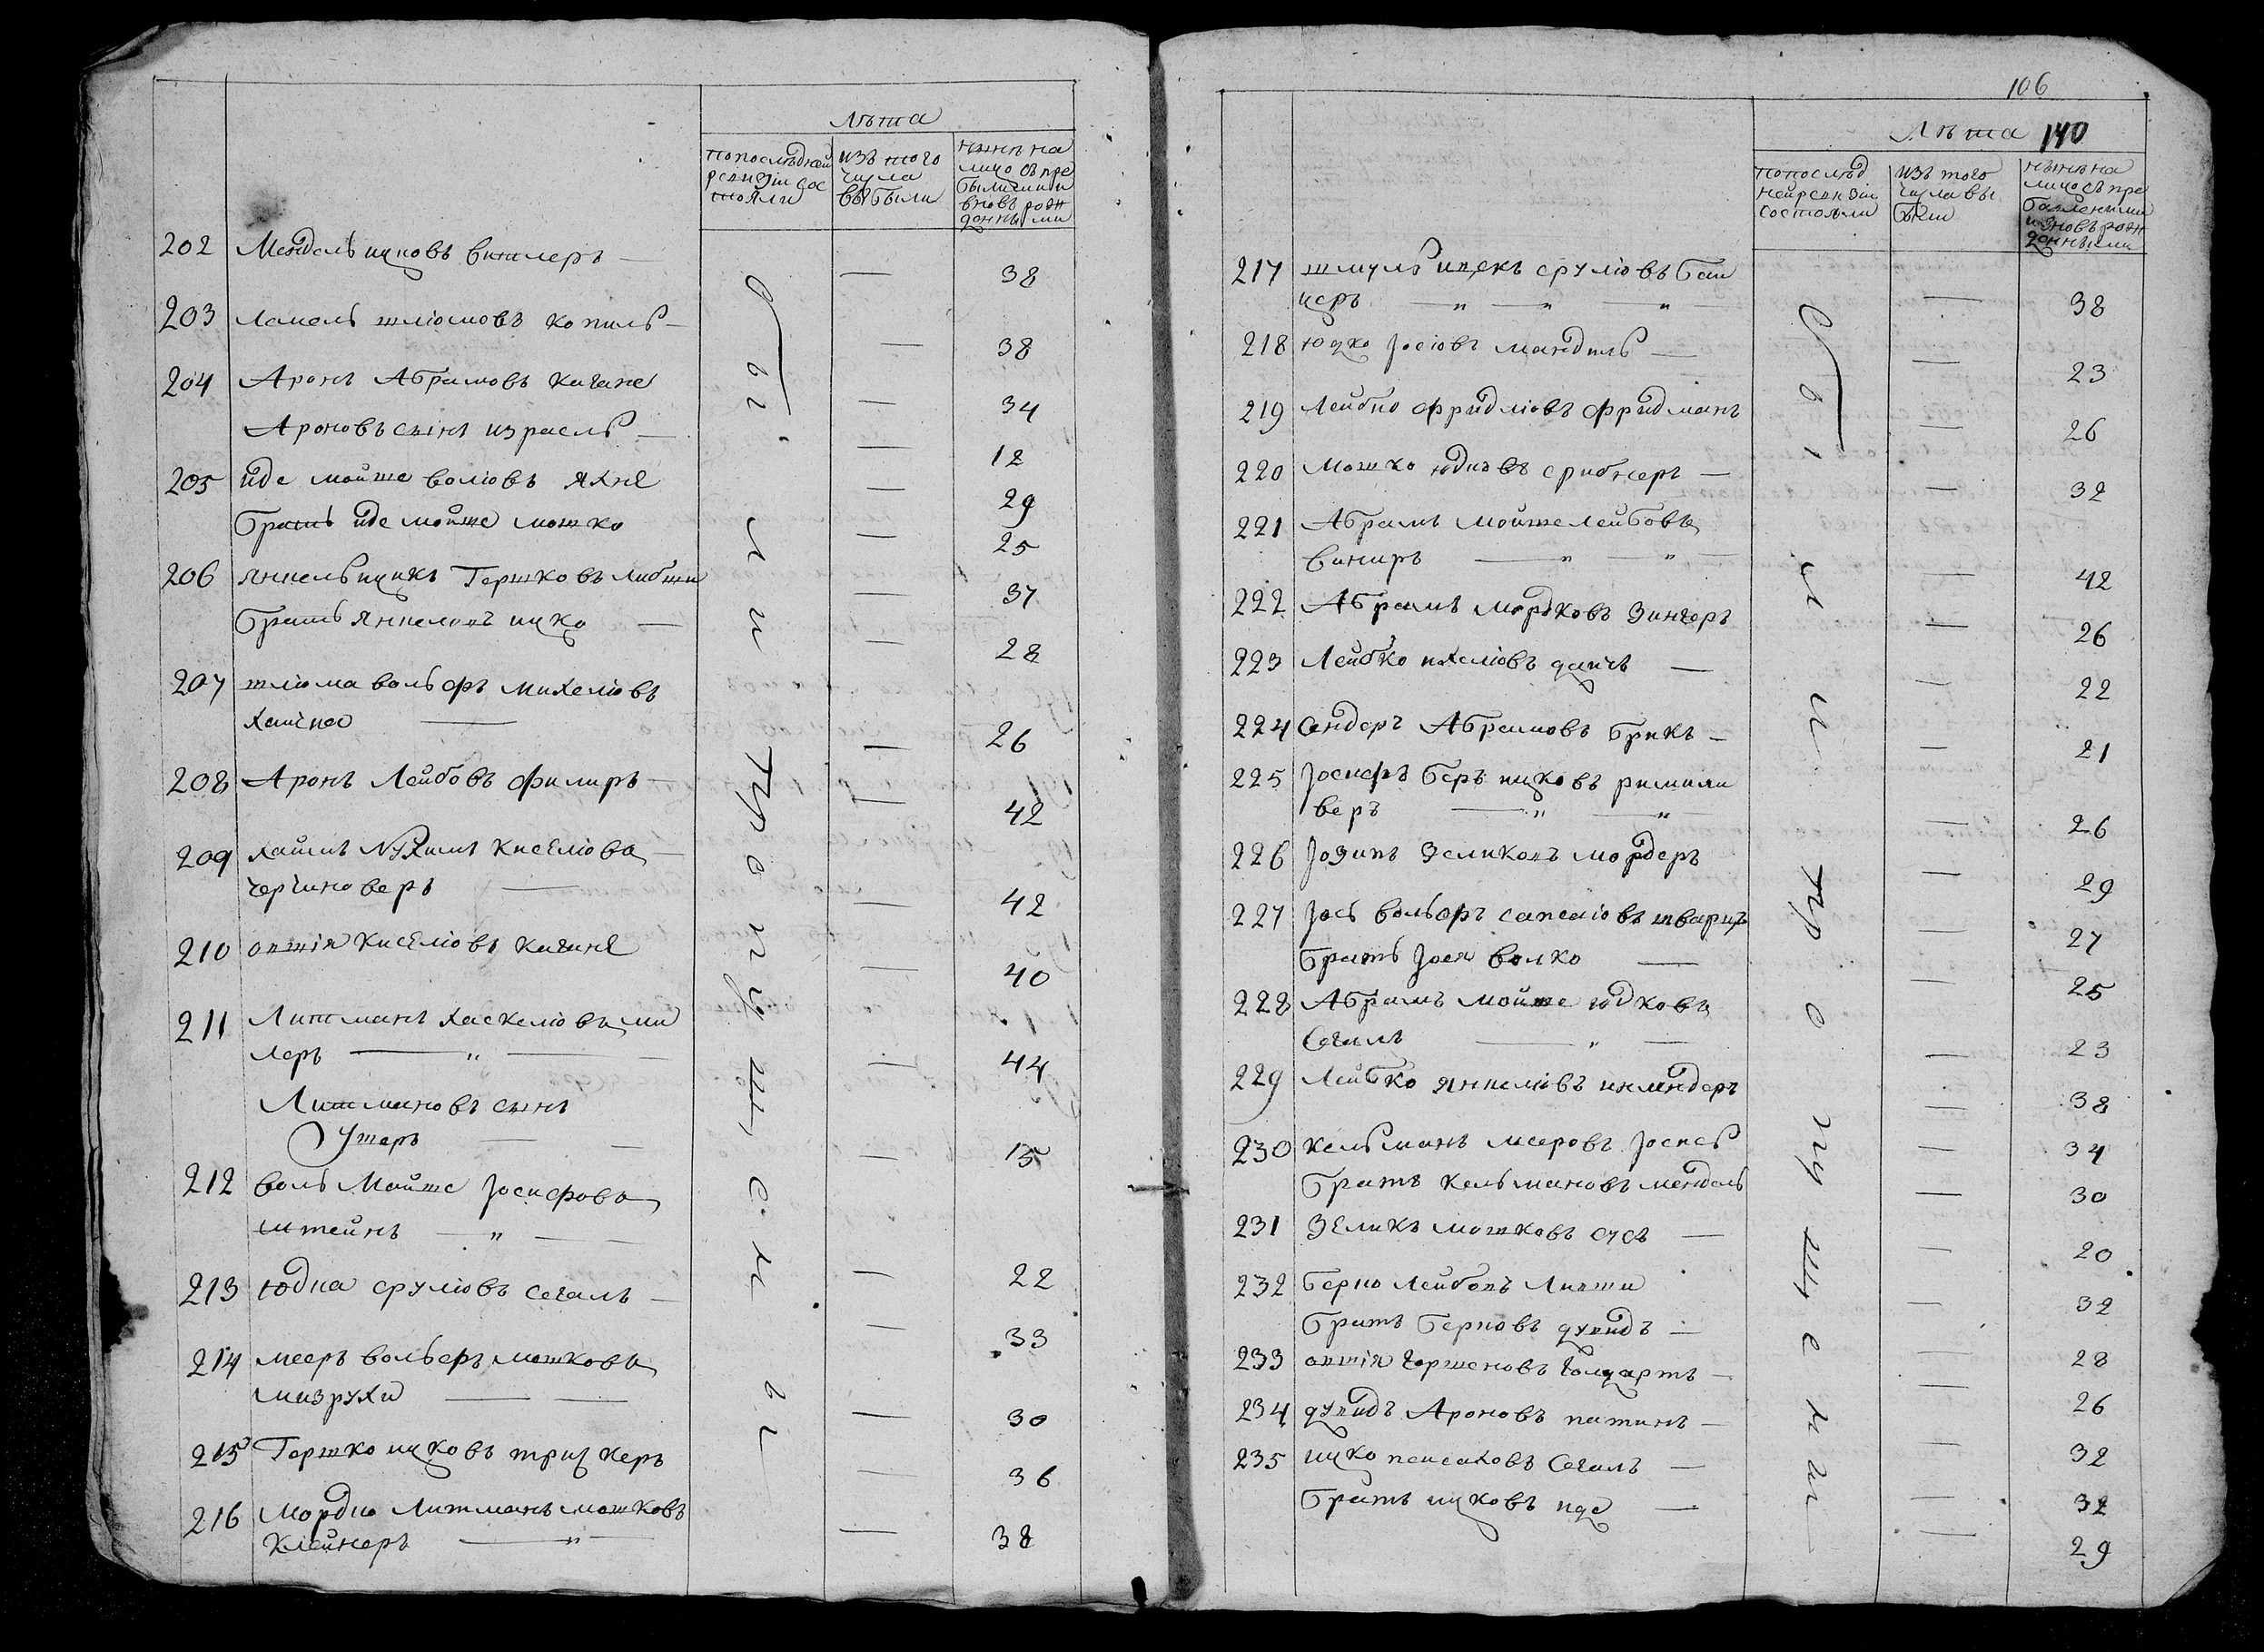 Лѣта
попослѣдней ревизіи сос тояли
изъ того числа выбыли
нынѣ на лицо съ при былыми и вновь рож донными
202 Мендель ицковъ витлеръ — — 38
203 Ламель шліомовъ копиль — — 38
204 Аронъ Абрамовъ кагане — 34
Ароновъ сынъ израель — — 12
205 иде мойше воліовъ яхне — 29
братъ иде мойше мошко — 25
206 янкель ицикъ Гершковъ либши — 37
братъ янкеловъ ицко — — 28
207 шліома вольфъ михеліовъ
хаипа — — 26
208 Аронъ Лейбовъ филиръ — — 42
209 хаимъ Нухимъ киселіовъ —
черчиноверъ — — 42
210 овшія киселіовъ кагане — 40
211 Литманъ хаскеліовъ ми
леръ — „ — — 44
Литмановъ сынъ
Ушеръ — — — 15
212 воль Мойше Јосифовъ
штейнъ — „ — — 22
213 юдка сруліовъ сегаль — — 33
214 мееръ вольфъ мошковъ
мизрухи — — — 30
215 Гершко ицковъ трискеръ — 36
216 Мордко Литманъ мошковъ
клейнеръ — „ — — 38
были пропущены
106
140
Лѣта
попослѣд ней ревизіи состояли
изъ того числа вы были
нынѣ на лицо съ при былыми и вновь рож донными
217 шмуль ицекъ сруліовъ бан
церъ — „ — „ — „ — — 38
218 юцко Јосіовъ мандиль — — 23
219 Лейбко фридліовъ фридманъ — 26
220 Мошко юдковъ срибнеръ — — 32
221 Абрамъ мойше лейбовъ
виниръ — „ — „ — — 42
222 Абрамъ мордковъ зингеръ — 26
223 Лейбко ихеліовъ дайчъ — — 22
224 Сендеръ Абрамовъ брикъ — — 21
225 Јосифъ беръ ицковъ римили
веръ — „ — „ — — 26
226 Јозипъ зеликовъ мордеръ — 29
227 Јось вольфъ сапсаіовъ шварцъ — 27
братъ Јося волко — — 25
228 Абрамъ мойше юдковъ
Сегаль — „ — — 23
229 Лейбко янкеліовъ инлендеръ — 38
230 кельманъ мееровъ Јоспсъ — 34
братъ кельмановъ мендель — 30
231 Зеликъ мошковъ сусъ — — 20
232 берко лейбовъ Ливши — 32
братъ берковъ дувидъ — — 28
233 овшія гершеновъ Голцартъ — — 26
234 дувидъ Ароновъ патинъ — — 32
235 ицко пейсаховъ Сегаль — — 32
братъ ицковъ иде — — 29
были пропущены